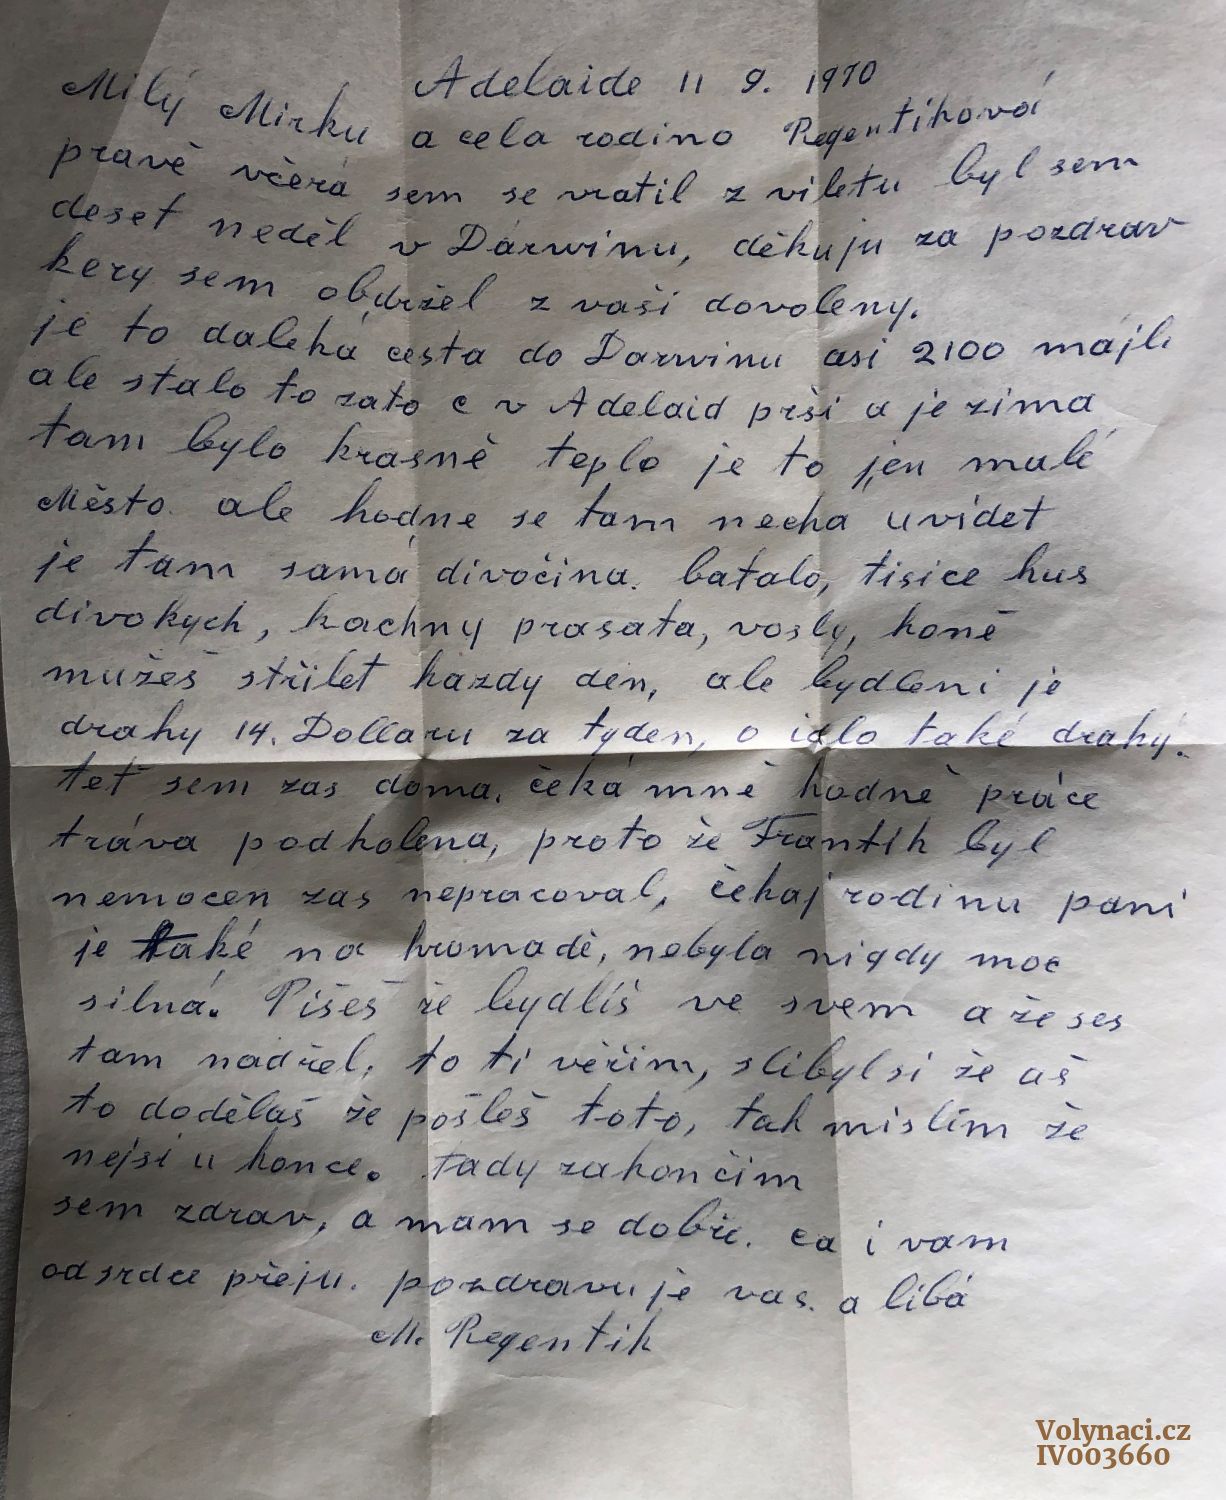 Adelaide 11 9. 1970
Milý Mirku a cela rodino Regentihová
pravě včerá sem se vratil z viletu byl sem
deset neděl v Dárwinu, děkuju za pozdrav
kery sem obdržel z vaši dovoleny.
je to daleká cesta do Darwinu asi 2100 májli
ale stalo to zato c v Adelaid prši a je zima
tam bylo krasně teplo je to jen malé
Město. ale hodne se tam necha uvídet
je tam samá divočina. batalo, tisice hus
divokych, kachny prasata, vosly, koně
mužeš střilet kazdy den, ale bydleni je
drahy 14. Dollaru za tyden, o idlo také drahý.
teť sem zas doma, čeká mně hodně práce
tráva podkolena, proto že Frantík byl
nemocen zas nepracoval, čekaj rodinu pani
je také na hromadě, nebyla nigdy moc
silná. Pišeš že bydlíš ve svem a že ses
tam nadřel, to ti věřim, slibyl si že aš
to doděláš že pošleš foto, tak mislím že
nejsi u konce. tady zakončim
sem zdrav, a mam se dobře. ca i vam
od srdce přeju. pozdravuje vas. a libá
M. Regentik
Volynaci.cz
IV003660